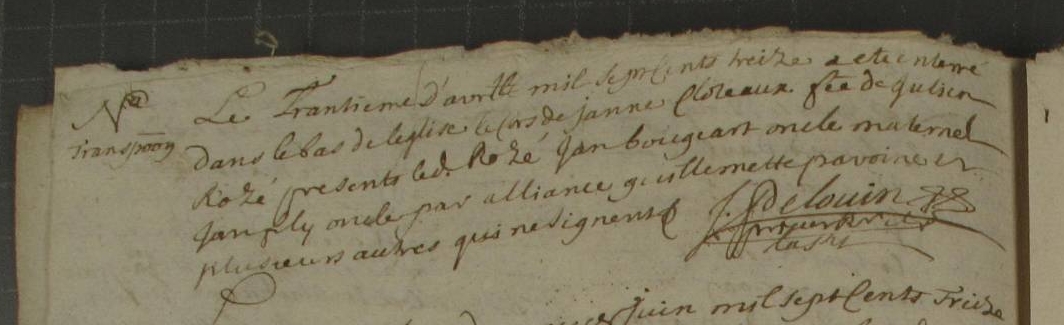 Na
Transpõon
Le Trantieme d'avrill mil sept Cents treize a ete enterré
dans le bas de leglise le Cors de janne Cloteaux fée de julien
Rozé presents led. Rozé jan bougeart oncle maternel
jan oncle par alliance guillemette pavoine et
plusieurs autres qui ne signent
J. Delouin
juin mil sept Cents Treize